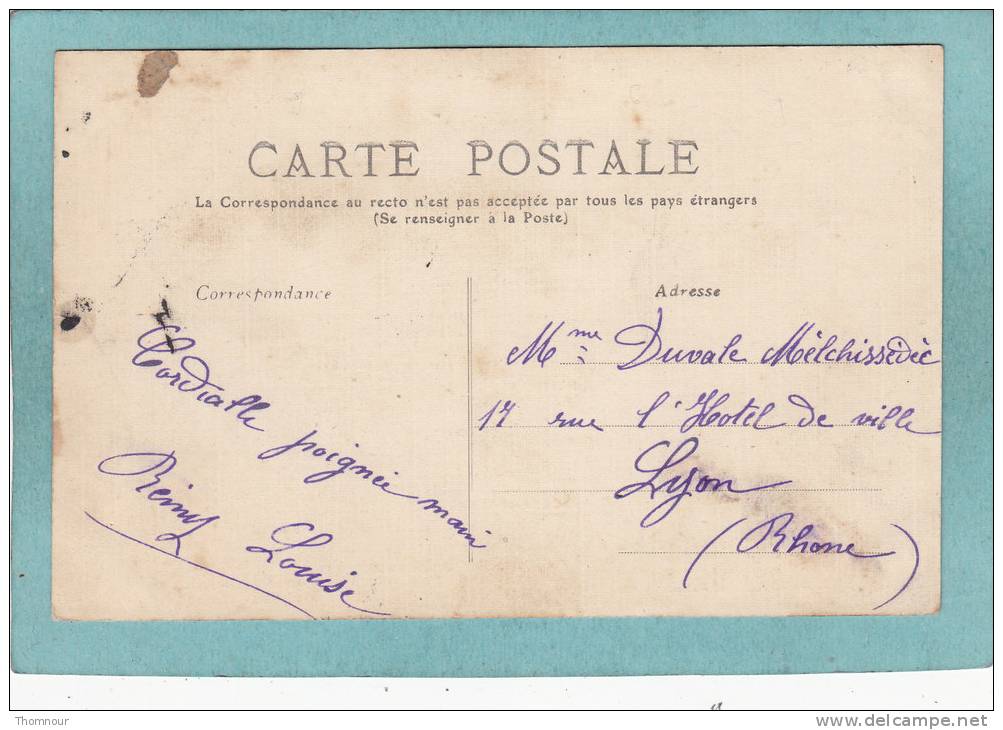 CARTE POSTALE
La Correspondance au recto n'est pas acceptée par tous les pays étrangers
(Se renseigner à la Poste)
Correspondance
Cordialle poignée main
Rémy Louise
Adresse
Mme Duvale Mélchissédèc
17 rue l'Hotel de ville
Lyon
(Rhone)
Thomnour
www.delcampe.net